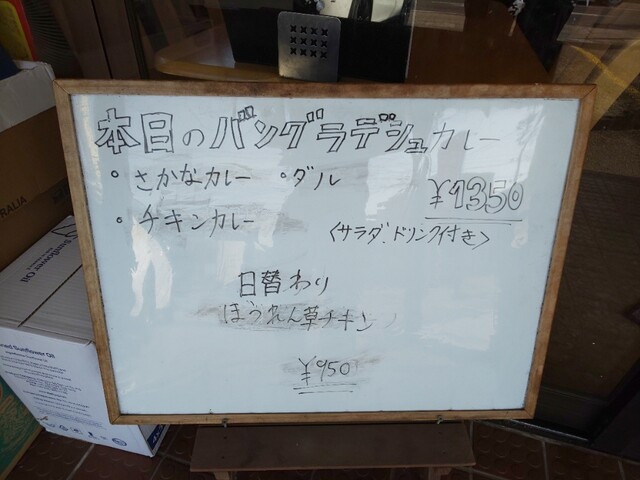 本日のバングラデシュカレー
・さかなカレー ・ダル
¥1350
・チキンカレー
<サラダ、ドリンク付き>
日替わり
ほうれん草チキン
¥950
RALIA
Sunflower Oil
Sunflower Oil